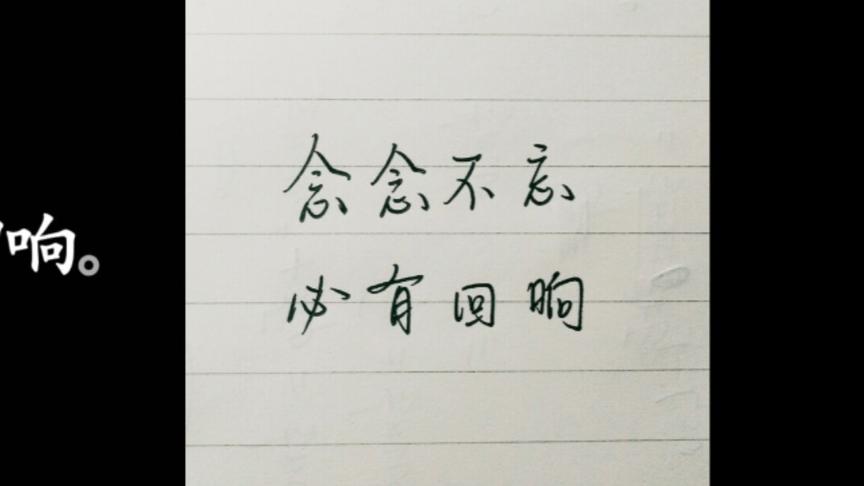 念念不忘
必有回响
响。